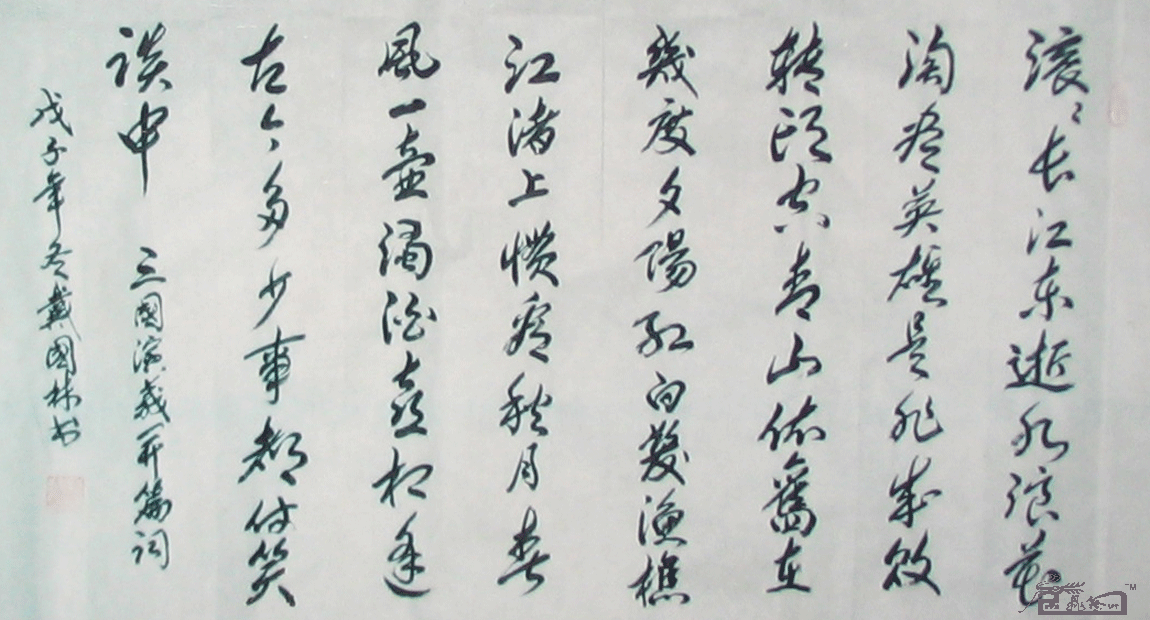 滚〻长江东逝水浪花
淘尽英雄是非成败
转头空青山依旧在
几度夕阳红白发渔樵
江渚上惯看秋月春
风一壶浊酒喜相逢
古今多少事都付笑
谈中 三国演义开篇词
戊子年冬戴国林书